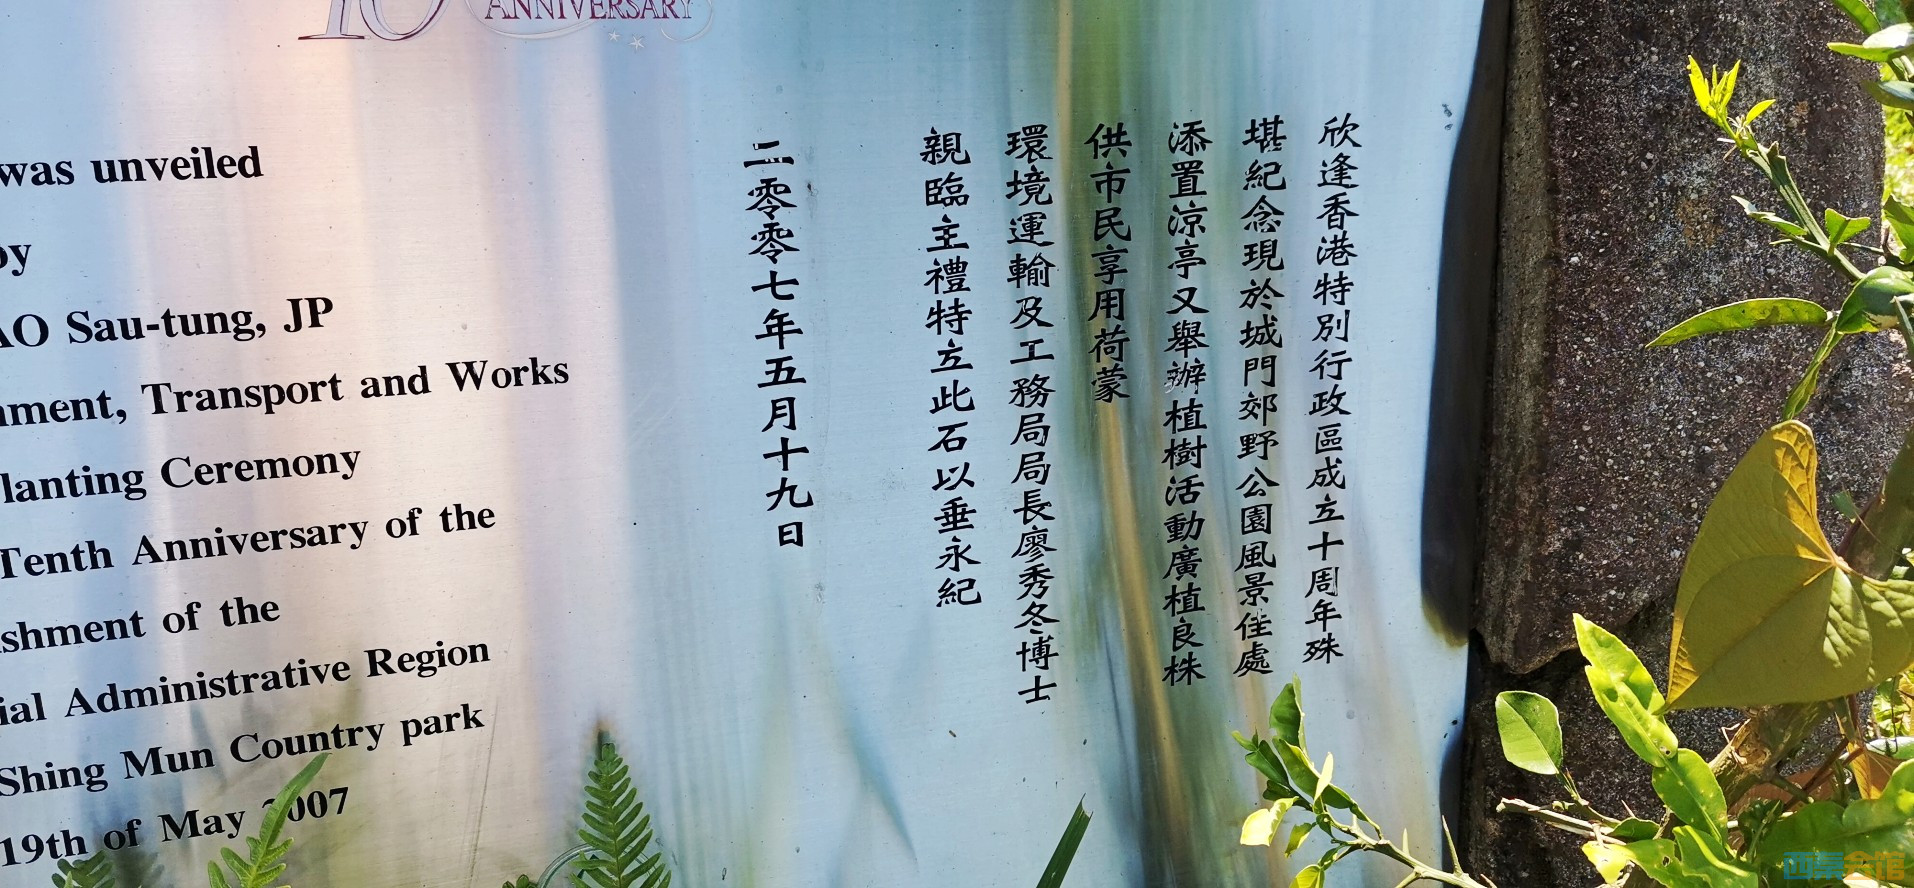 10 ANNIVERSARY
欣逢香港特別行政區成立十周年殊
堪紀念現於城門郊野公園風景佳處
添置涼亭又舉辦植樹活動廣植良株
供市民享用荷蒙
環境運輸及工務局局長廖秀冬博士
親臨主禮特立此石以垂永紀
二零零七年五月十九日
was unveiled
by
AO Sau-tung, JP
nment, Transport and Works
lanting Ceremony
Tenth Anniversary of the
ishment of the
ial Administrative Region
Shing Mun Country park
19th of May 2007
西秦会馆